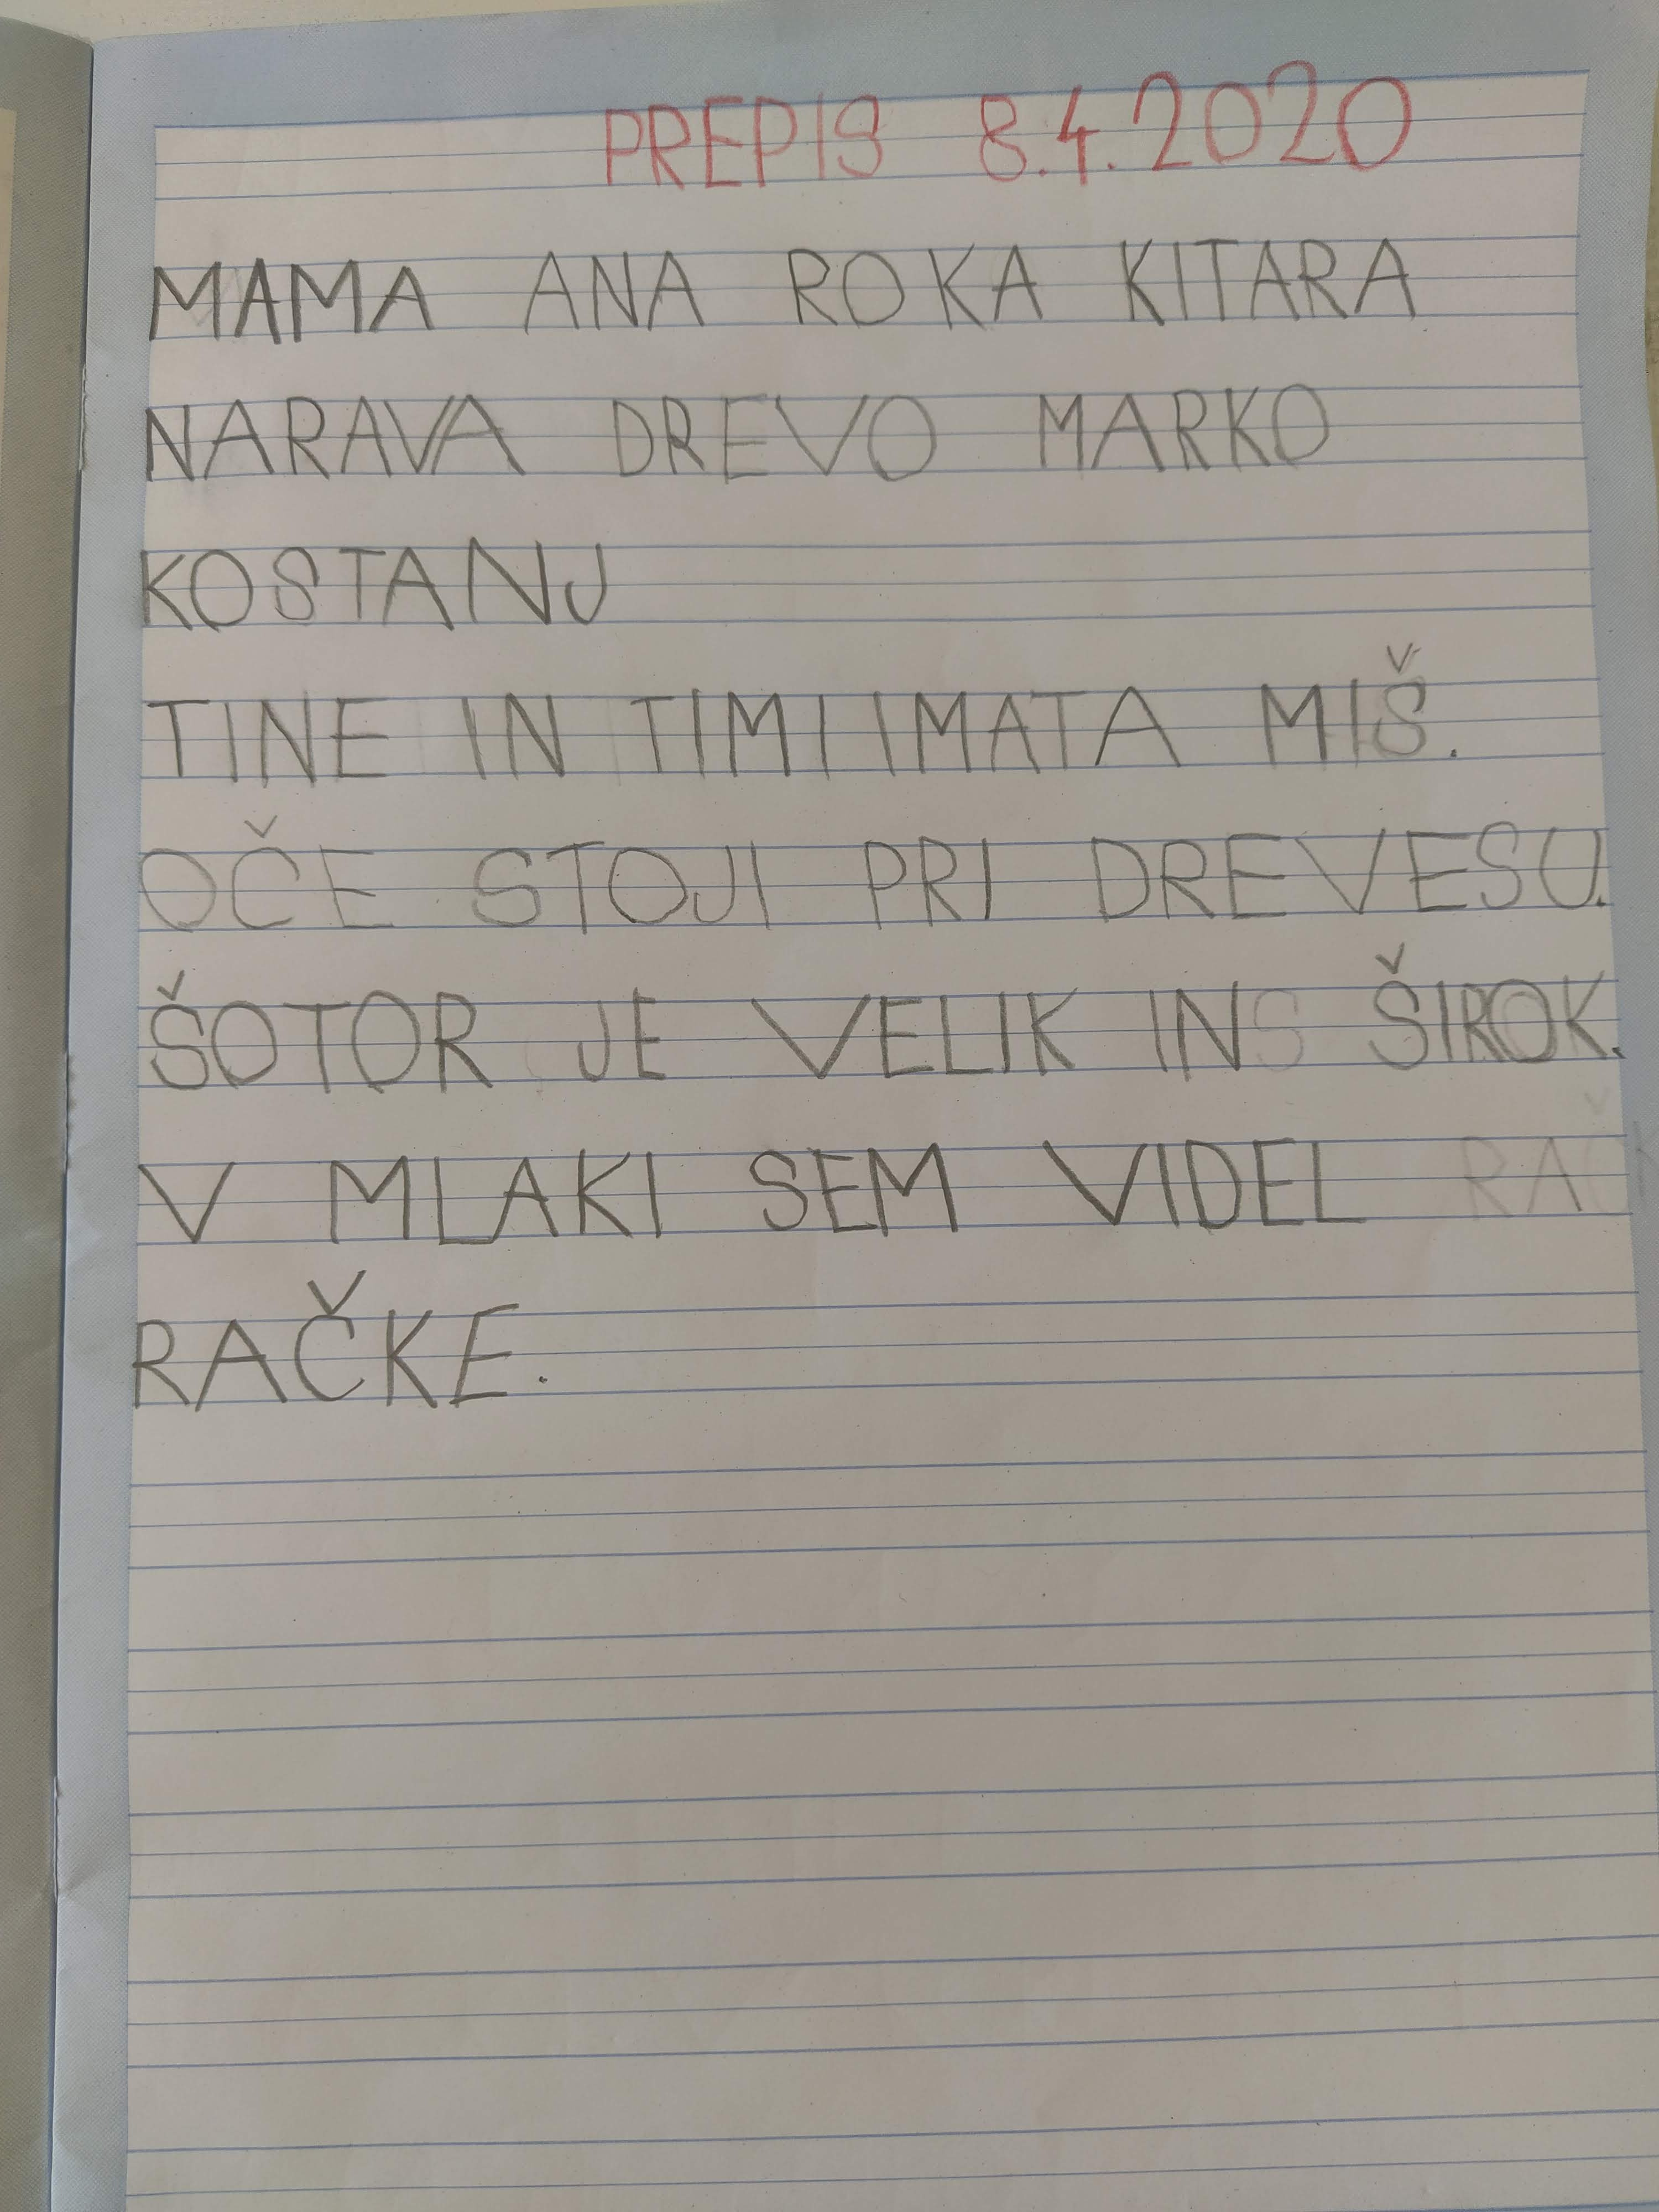 PREPIS 8.4.2020
MAMA ANA ROKA KITARA
NARAVA DREVO MARKO
KOSTANJ
TINE IN TIMI IMATA MIŠ.
OČE STOJI PRI DREVESU.
ŠOTOR JE VELIK IN ŠIROK.
V MLAKI SEM VIDEL
RAČKE.